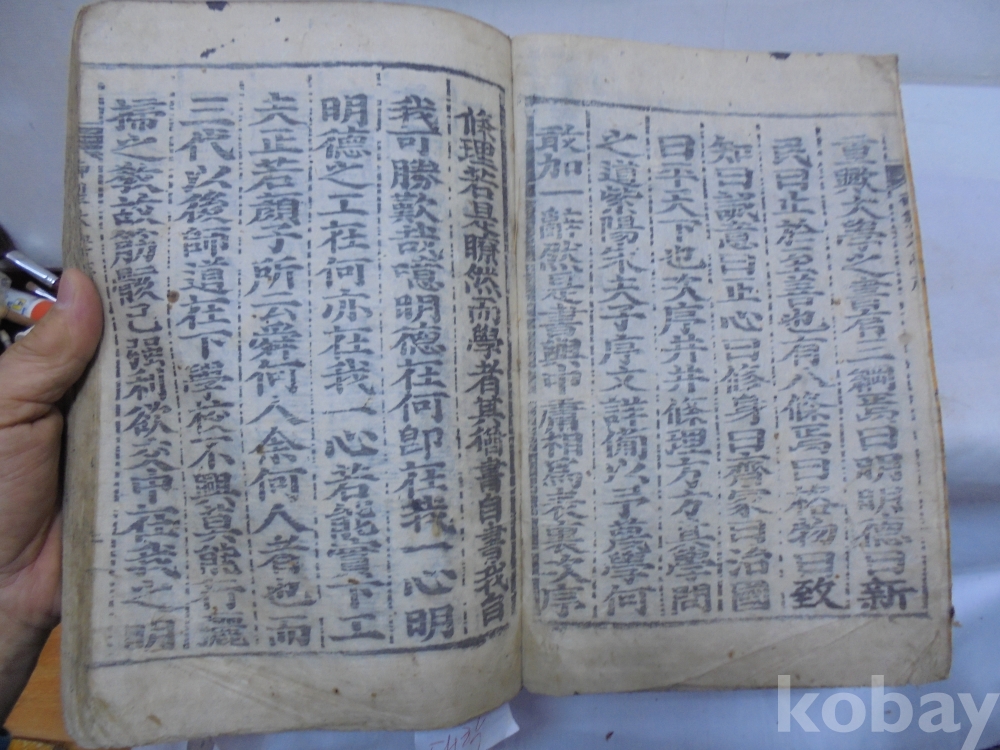 大學之書有三綱焉曰明明德曰新
民曰止於至善也有八條焉曰格物曰致
知曰誠意曰正心曰修身曰齊家曰治國
曰平天下也次序井井條理方方其學問
之道紫陽朱夫子序文詳備以予蔑學何
敢加一辭然是書與中庸相爲表裏次序
條理若是瞭然而學者其猶書自書我自
我可勝歎哉噫明德在何卽在我一心明
明德之工在何亦在我一心若能實下工
夫正若顔子所云舜何人余何人者也而
三代以後師道在下學校不興莫能行灑
掃之敎故筋骸已强利欲交中在我之明
kobay